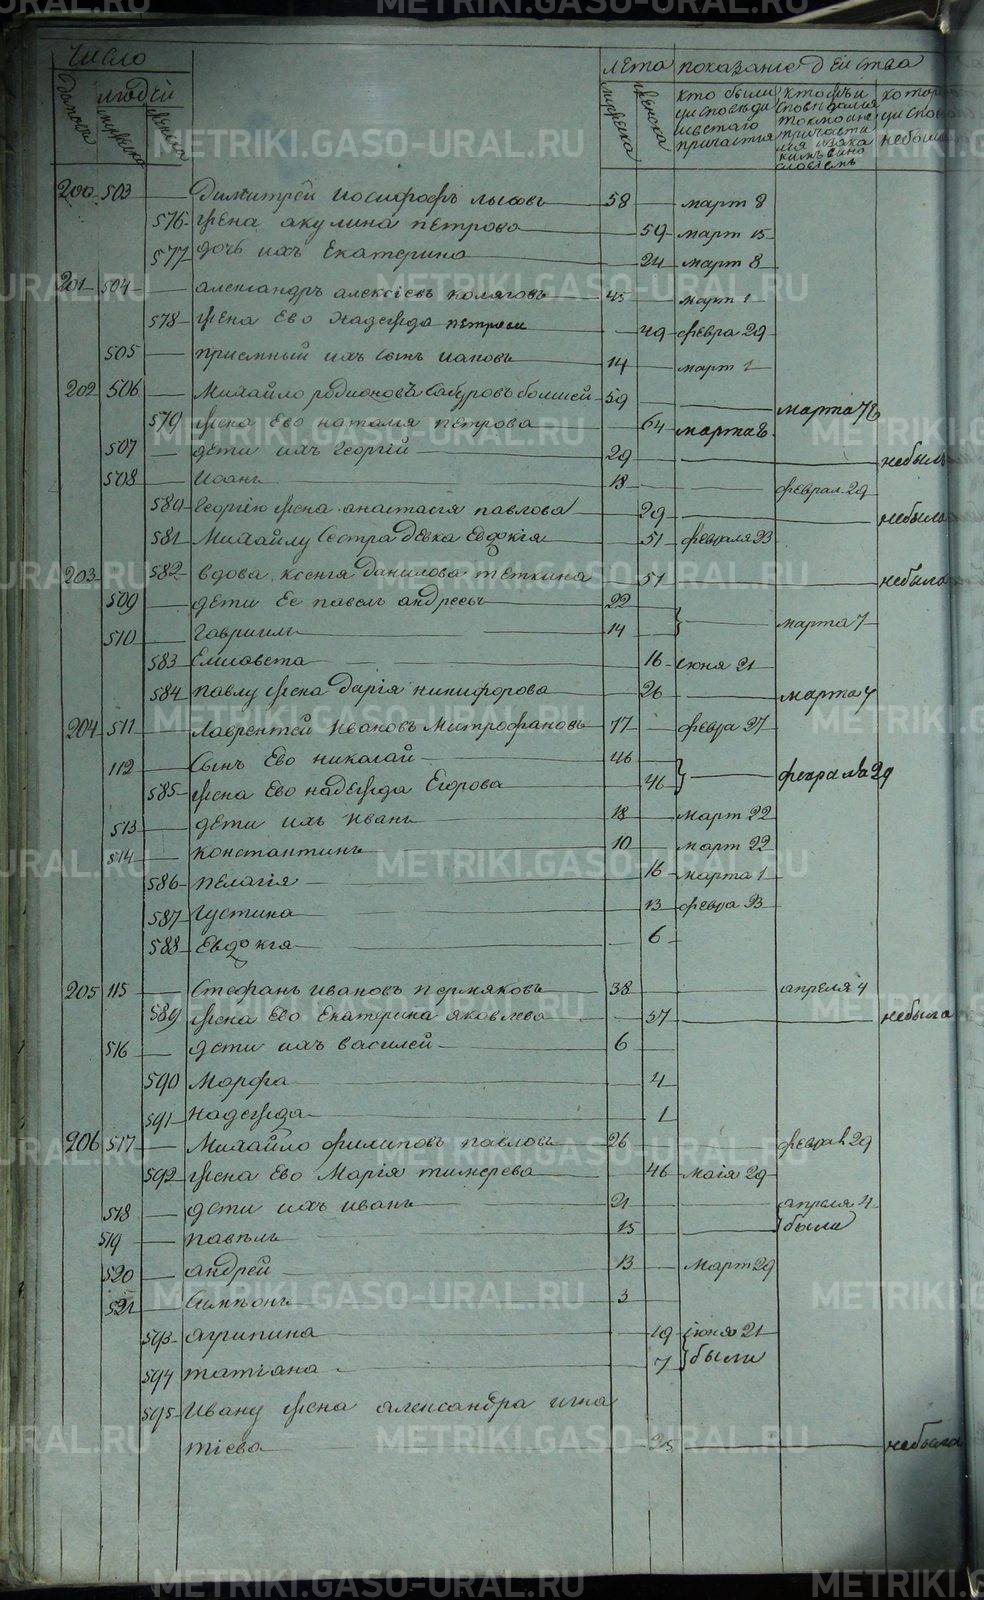 число лета показание действа
домовъ людей мужеска женска мужеска женска
кто были у исповеди и святаго причастия
кто были исповедались токмо а не причастились и за какимъ винословиемъ
которые у исповеди небыли
200 503 Димитрей Иосифофъ 58 март 8
576 жена акулина петрова 59 март 15
577 дочь ихъ Екатерина 24 март 8
201 504 александръ алексiевъ 45 март 1
578 жена Ево надежда петрова 49 февра 29
505 приемный ихъ сынъ 14 март 1
202 506 Михайло родионовъ Сабуровъ большей 59 марта 7
579 жена Ево наталiя петрова 64 марта 8
507 дети ихъ Георгiй 29 небылъ
508 Иоанъ 18 феврал 29
580 Георгiю жена анастасiя павлова 29 небыла
581 Михайлу сестра девка Евдокiя 51 февраля 23
203 582 вдова ксенiя данилова теткина 51 небыла
509 дети Ее павелъ андреевъ 22
510 Гавриилъ 14 марта 7
583 Елисавета 16 июня 21
584 павлу жена дарiя никифорова 26 марта 7
204 511 Лаврентей Ивановъ Митрофановъ 77 февра 27
112 Сынъ Ево николай 46
585 жена Ево надежда Егорова 46 феврала 29
513 дети ихъ Иванъ 18 март 22
514 константинъ 10 март 22
586 пелагiя 16 марта 1
587 Густина 13 февра 23
588 Евдокiя 6
205 115 Стефанъ Ивановъ пермяковъ 38 апреля 4
589 жена Ево Екатерина яковлева 37 небыла
516 дети ихъ василей 6
590 Марфа 4
591 надежда 1
206 517 Михайло филиповъ павловъ 26 феврал 29
592 жена Ево Марiя 46 маiя 29
518 дети ихъ иванъ 21 апреля 4
519 павелъ 15 были
520 андрей 13 март 29
521 3
593 агрипина 19 июня 21
594 татiана 7 были
595 Ивану жена александра игна
тiева 25 небыла
METRIKI.GASO-URAL.RU